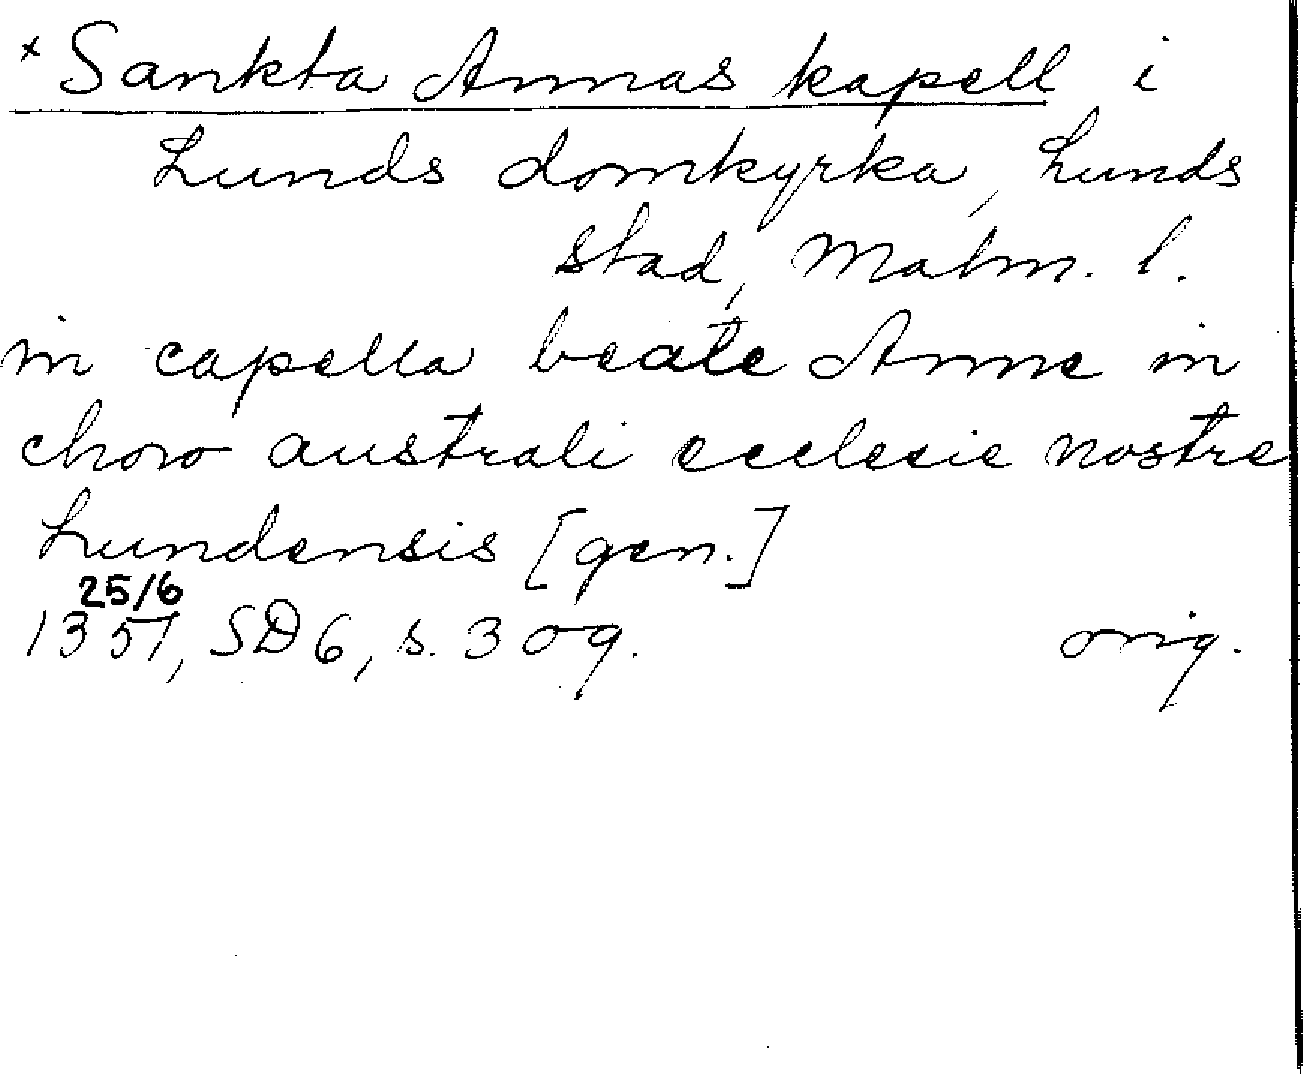 *Sankta Annas kapell i
Lunds domkyrka, Lunds
stad, Malm. l.
in capella beate Anne in
choro australi ecclesie nostre
Lundensis [gen.]
25/6
1357, SD 6, s. 309. orig.